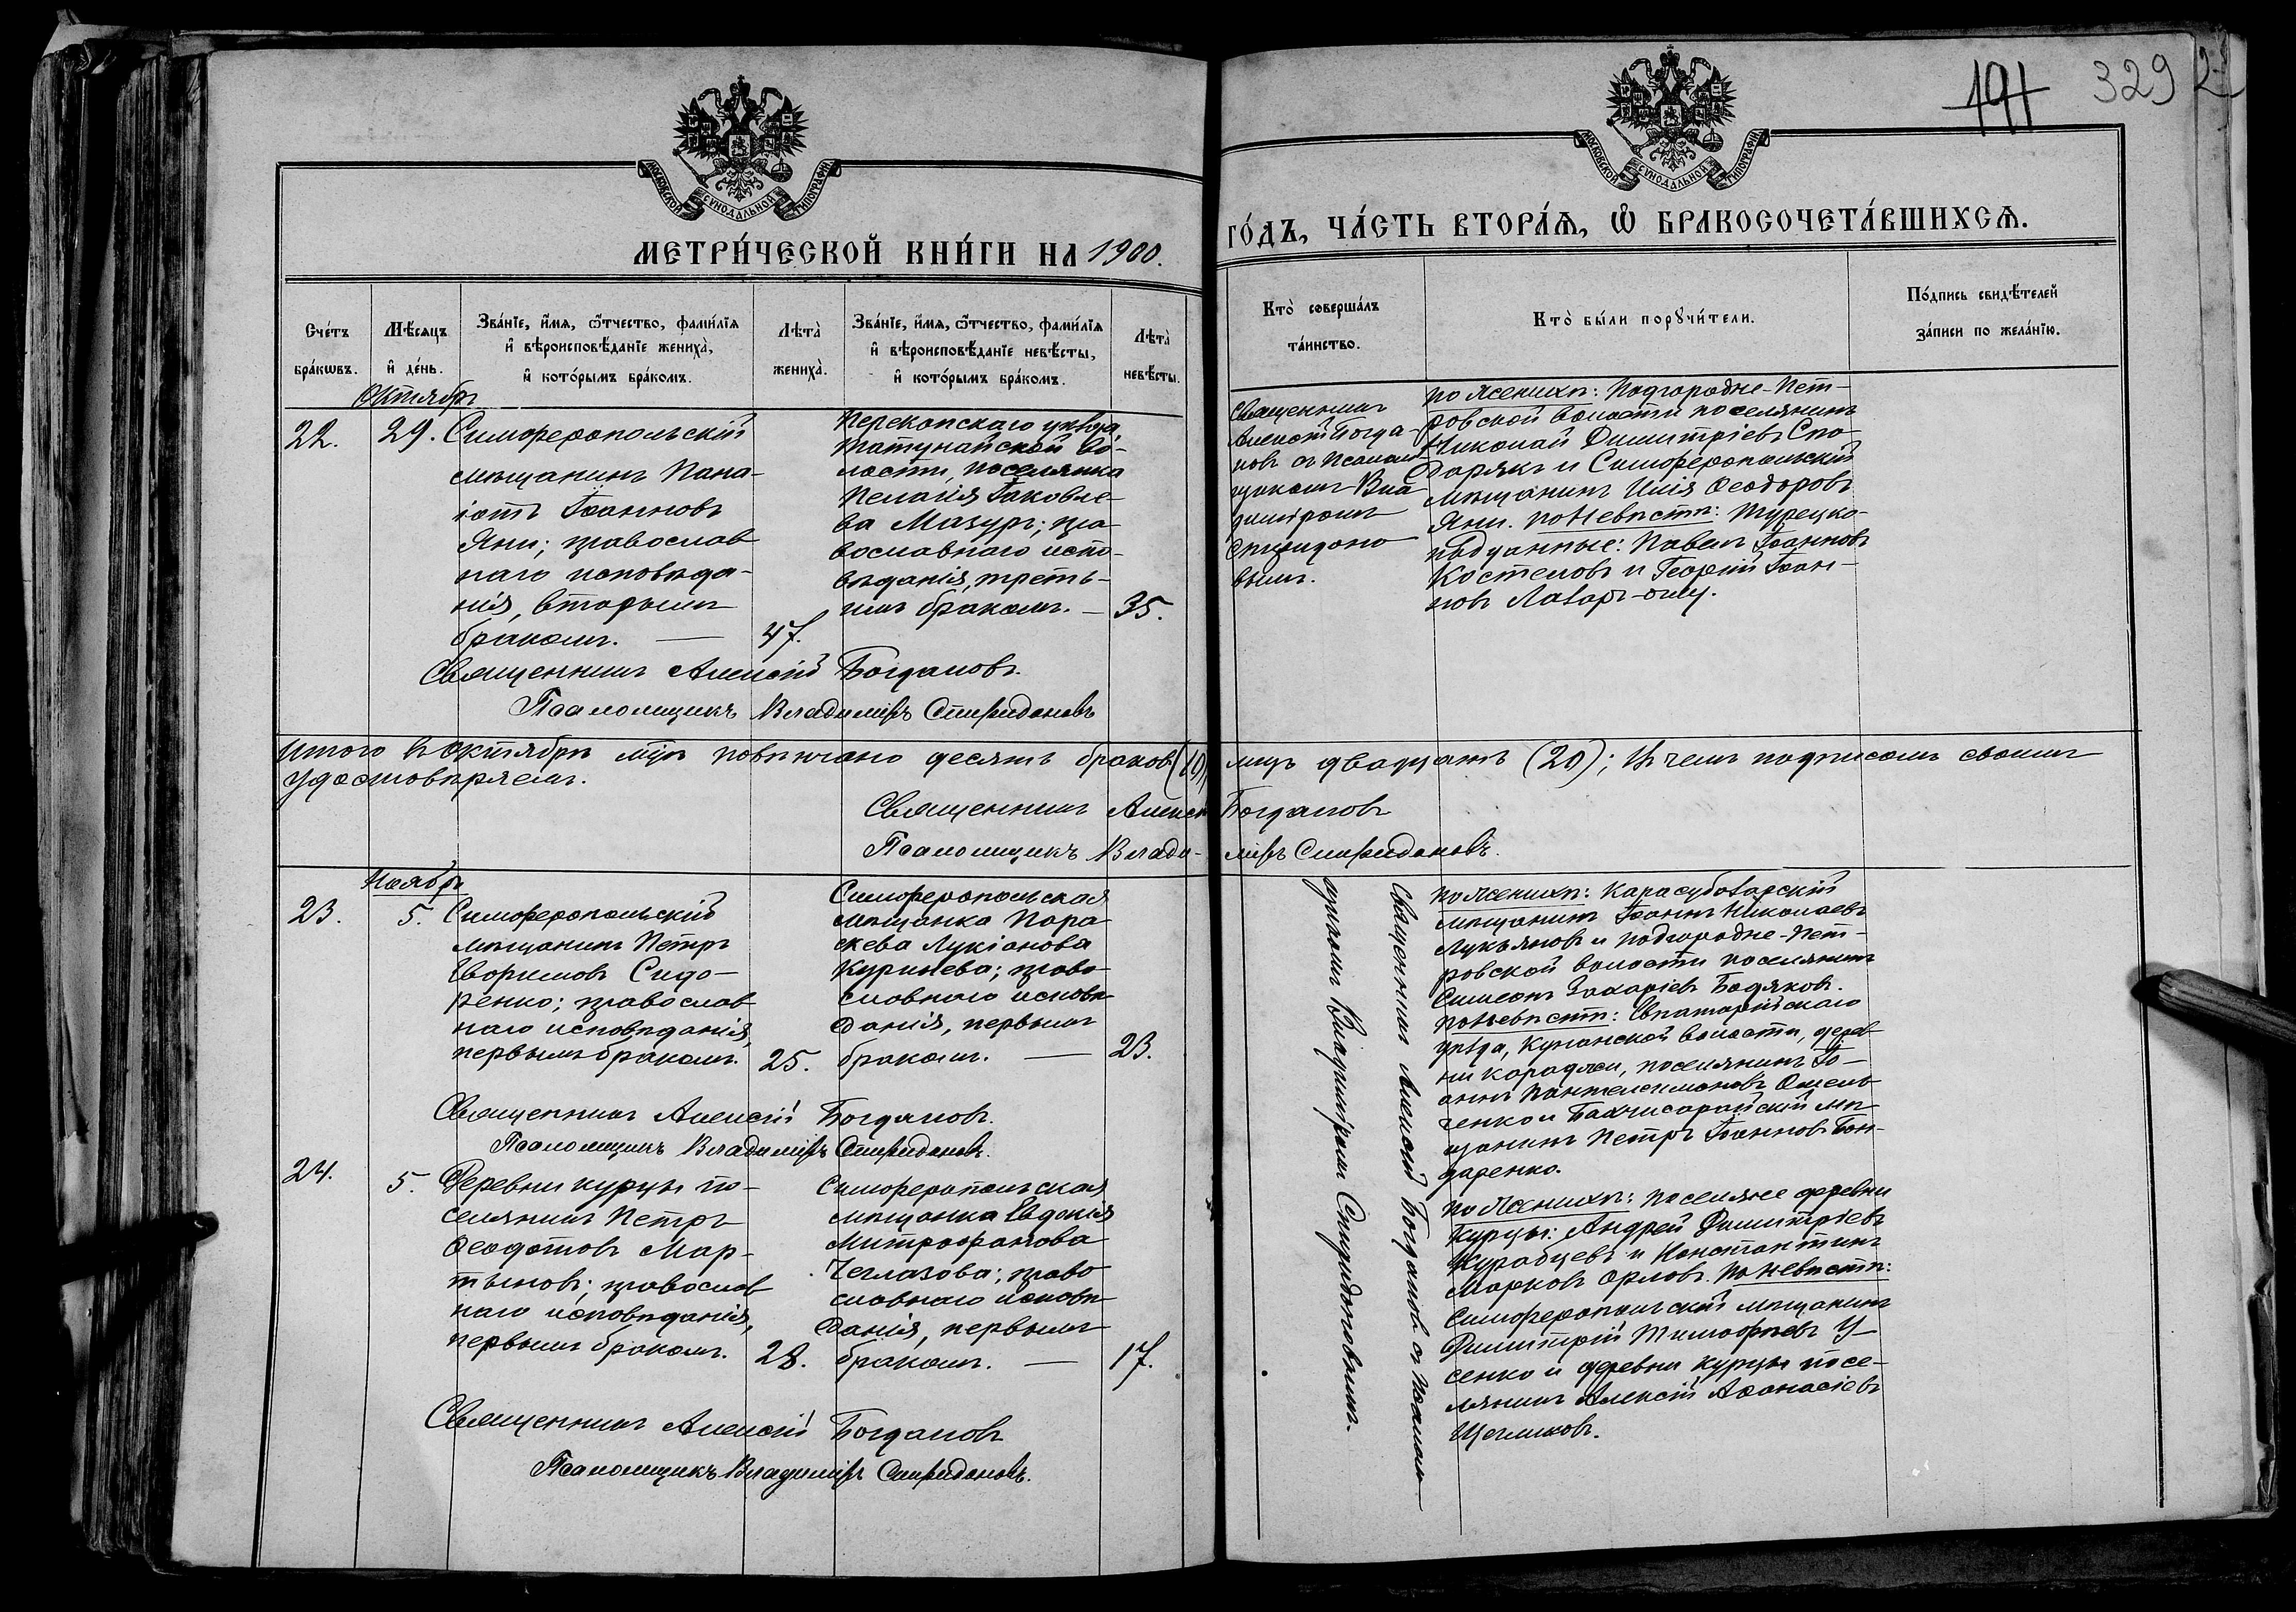 191 329
МОСКОВСКОЙ СѴНОДАЛЬНОЙ ТИПОГРАФІИ
МОСКОВСКОЙ СѴНОДАЛЬНОЙ ТИПОГРАФІИ
МЕТРИ́ЧЕСКОЙ КНИ́ГИ НА 1900.
ГО́ДЪ, ЧА́СТЬ ВТОРА́Я, Ѡ БРАКОСОЧЕТА́ВШИХСѦ.
Сче́тъ
бра́кѡвъ.
Мѣ́сяцъ
и҆ де́нь.
Зва́нїе, и҆́мѧ, ѻ҆́тчество, фами́лїѧ
и҆ вѣроисповѣ́данїе жениха̀,
и҆ кото́рымъ бра́комъ.
Лѣта̀
жениха̀.
Зва́нїе, и҆́мѧ, ѻ҆́тчество, фами́лїѧ
и҆ вѣроисповѣ́данїе невѣ́сты,
и҆ кото́рымъ бра́комъ.
Лѣта̀
невѣ́сты.
Кто̀ соверша́лъ
та́инство.
Кто̀ бы́ли порꙋчи́тели.
По́дпись свидѣ́телей
за́писи по жела́нїю.
Октябрь
22.
29.
Симферопольскій
мѣщанинъ Пана-
іотъ Іоанновъ
Яни; православ
наго исповѣда-
нія, вторымъ
бракомъ. —
47.
Перекопскаго уѣзда
волости, поселянка
Пелагія Іаковле-
ва Мазуръ; пра
вославнаго испо-
вѣданія, треть-
имъ бракомъ. —
35.
Священникъ
Алексій Богда-
новъ съ псалом
щикомъ Вла
диміромъ
Спиридоно
вымъ.
По женихѣ: Подгородне-Пет-
ровской волости поселянинъ
Николай Димитріевъ Спо
дарякъ и Симферопольскій
мѣщанинъ Илія Ѳеодоровъ
Яни. По невѣстѣ: Турецко-
подданные: Павелъ Іоанновъ
Костеловъ и Георгій Іоан-
новъ
Священникъ Алексій Богдановъ.
Псаломщикъ Владиміръ Спиридоновъ
Итого въ октябрѣ мцѣ повѣнчано десять браковъ (10), лицъ двадцать (20); въ чемъ подписомъ своимъ
удостовѣряемъ.
Священникъ Алексій Богдановъ
Псаломщикъ Влади- міръ Спиридоновъ.
Ноябрь
23.
5.
Симферопольскій
мѣщанинъ Петръ
Сидо-
ренко; православ
наго исповѣданія,
первымъ бракомъ.
25.
Симферопольская
мѣщанка Пара-
скева Лукіанова
Курилева; право
славнаго исповѣ
данія, первымъ
бракомъ. —
23.
Священникъ Алексій Богдановъ съ псалом-
щикомъ Владиміромъ Спиридоновымъ.
По женихѣ: Карасубазарскій
мѣщанинъ Іоаннъ Николаевъ
Лукьяновъ и Подгородне-Пет-
ровской волости поселянинъ
Симеонъ Захаріевъ Бодяковъ.
По невѣстѣ: Евпаторійскаго
уѣзда, волости, дерев
ни Караджи, поселянинъ Іо-
аннъ Пантелеимоновъ Омель
ченко и Бахчисарайскій мѣ-
щанинъ Петръ Іоанновъ Бон-
даренко.
Священникъ Алексій Богдановъ.
Псаломщикъ Владиміръ Спиридоновъ.
24.
5.
Деревни Курцы по-
селянинъ Петръ
Ѳеодотовъ Мар-
тыновъ; православ
наго исповѣданія,
первымъ бракомъ.
28.
Симферопольская
мѣщанка Евдокія
Митрофанова
Чеглазова; право
славнаго исповѣ
данія, первымъ
бракомъ. —
17.
По женихѣ: Поселяне деревни
Курцы: Андрей Димитріевъ
Курабцевъ и Константинъ
Марковъ Орловъ. По невѣстѣ:
Симферопольскій мѣщанинъ
Димитрій Тимофѣевъ У-
сенко и деревни Курцы посе-
лянинъ Алексій Аѳанасіевъ
Щегликовъ.
Священникъ Алексій Богдановъ
Псаломщикъ Владиміръ Спиридоновъ.